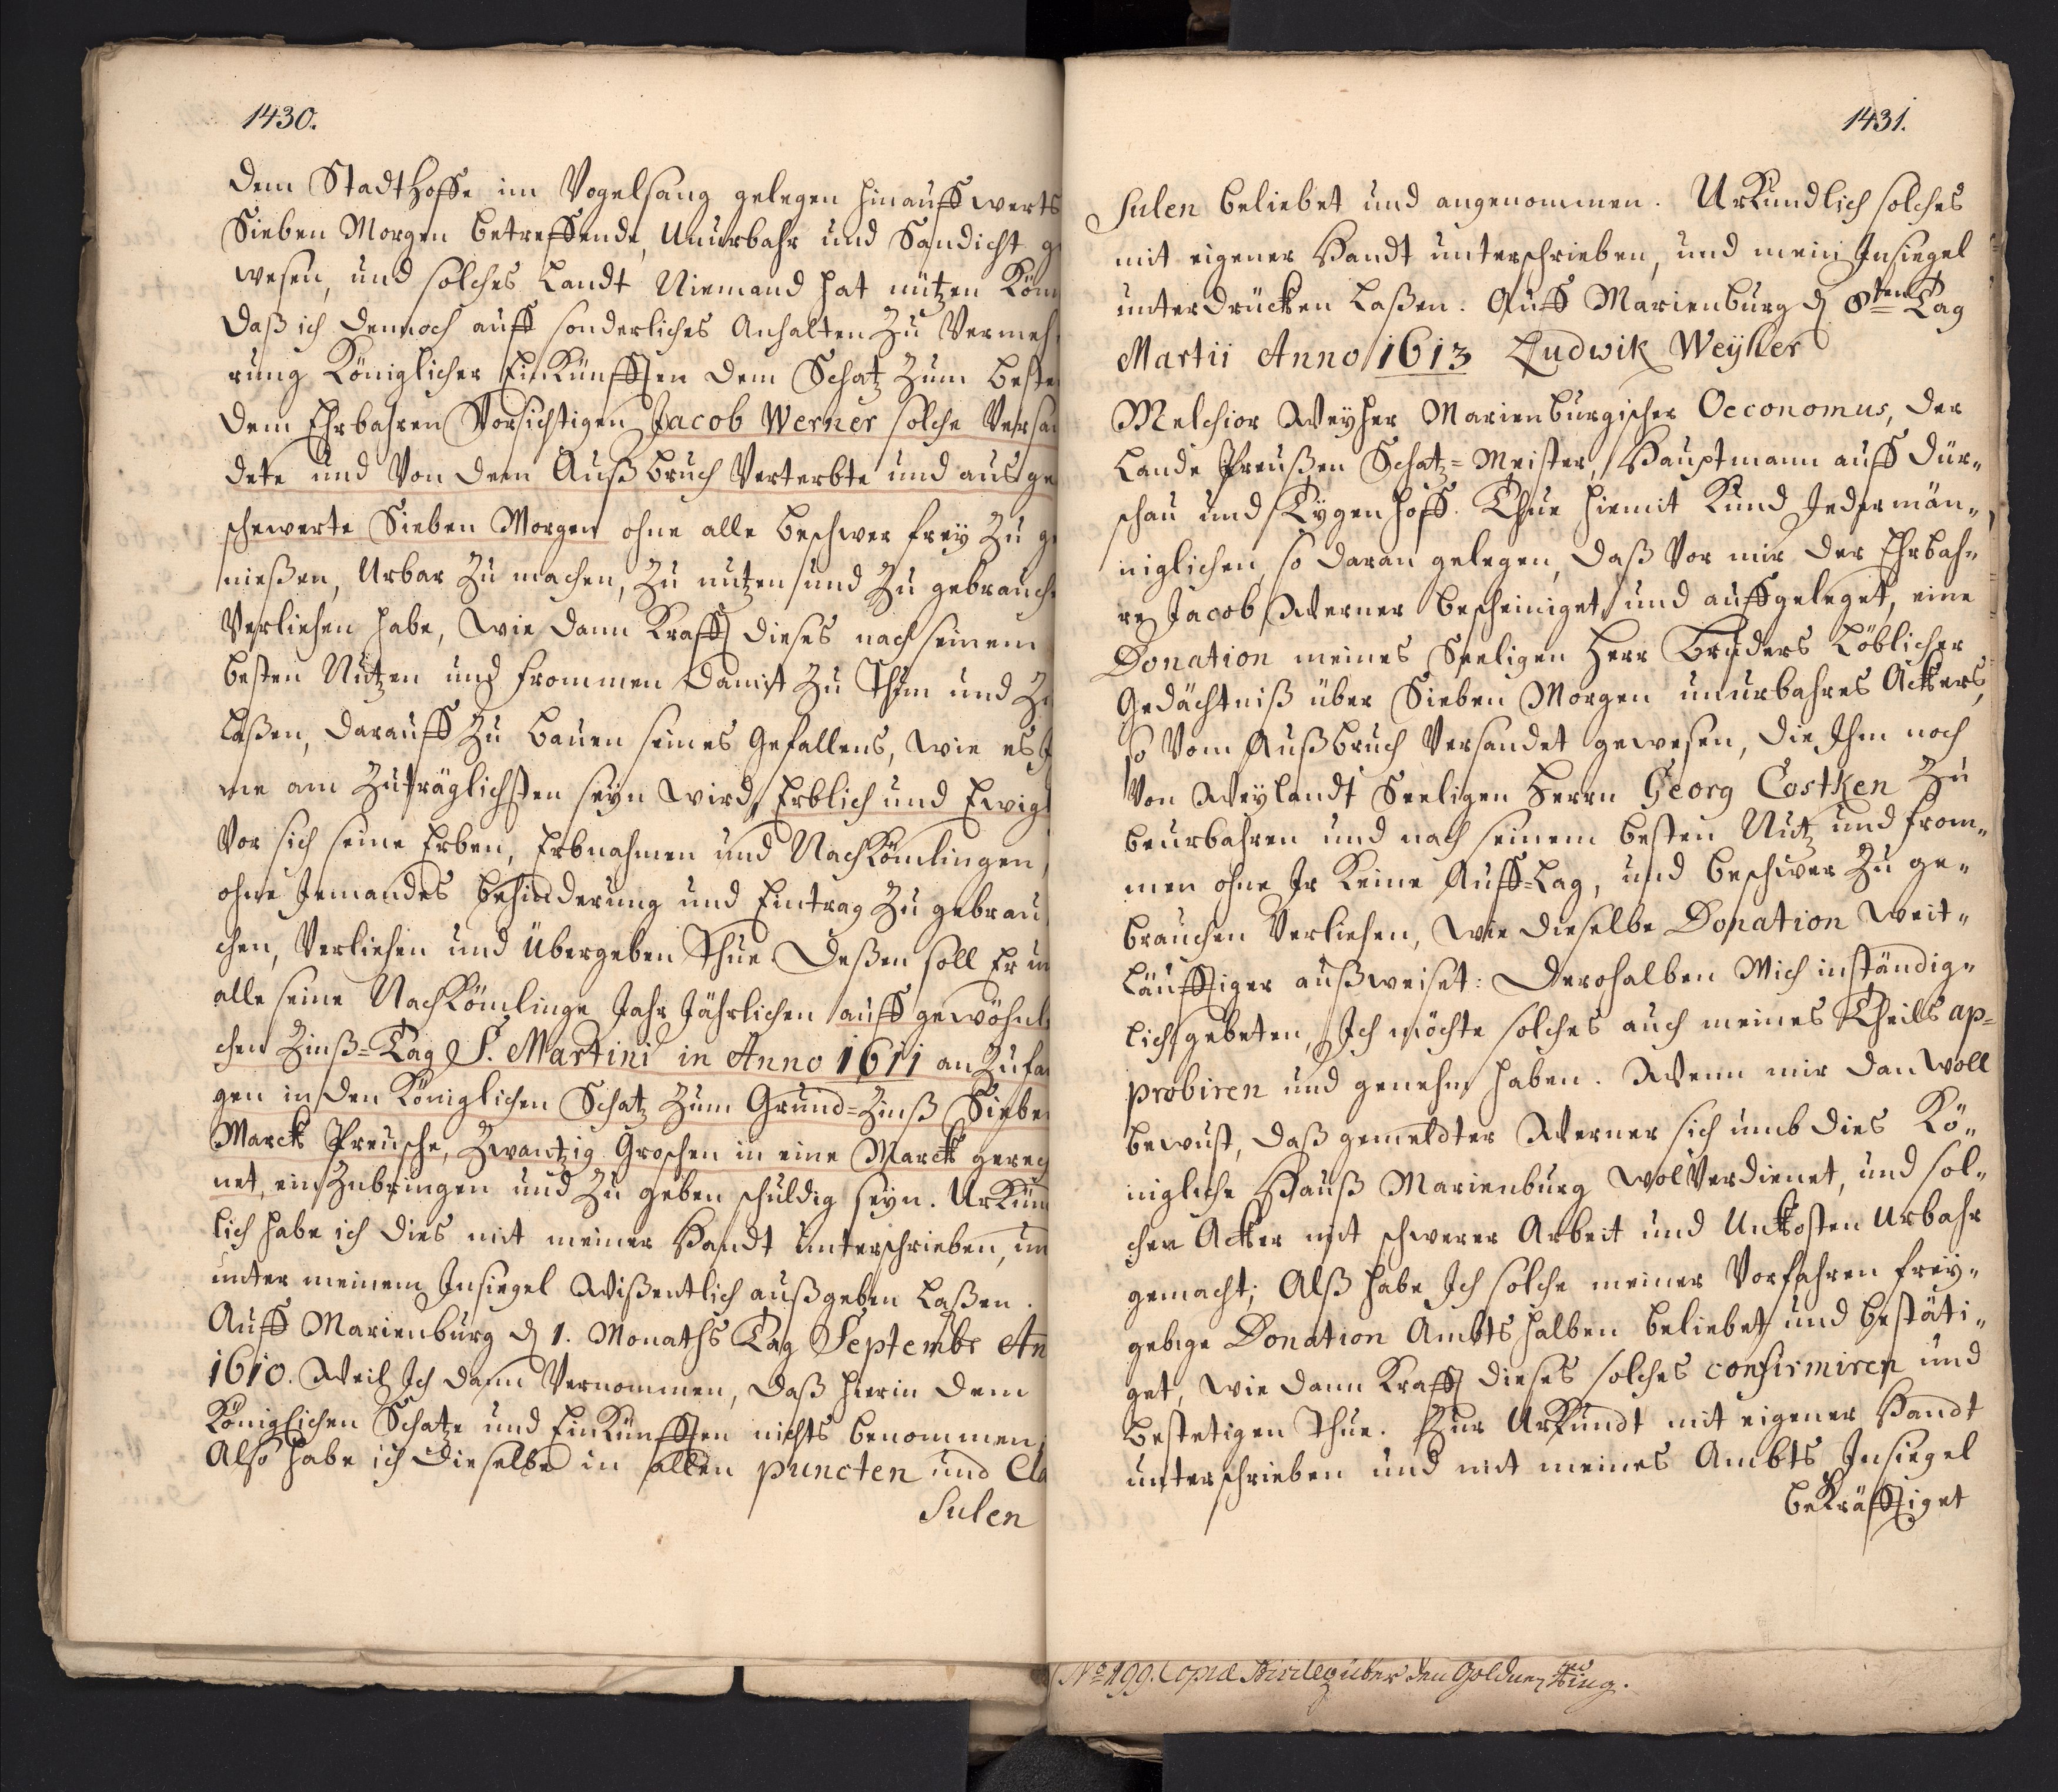 1430.
dem Stadthoffe im Vogelsang gelegen hinauffwerts
Sieben Morgen betreffende, Unurbahr und Sandicht ge
wesen, und solches Landt Niemand hat nützen Kön
daß ich dennoch auff sonderliches Anhalten Zu Vermeh
rung Königlicher EinKünfften dem Schatz Zum beste
dem Ehrbahren Vorsichtigen Jacob Werner solche Versan
dete und Von dem Außbruch Verterbte und ausge
schewerte Sieben Morgen ohne alle beschwer frey Zu ge
nießen, Urbar Zu machen, Zu nutzen und Zu gebrauche
Verliehen habe, Wie dann Krafft dieses nach seinem
besten Nutzen und frommen damit Zu Thun und Zu
laßen, darauff Zu bauen seines Gefallens, wie es Ih
me am Zuträglichsten seyn wird, Erblich und Ewigl
Vor sich seine Erben, Erbnahmen und NachKömlingen,
ohne Jemandes behinderung und Eintrag Zu gebrau
chen, Verliehen und Übergeben Thue. Deßen soll Er un
alle seine NachKömlinge Jahr Jährlichen auff gewöhnli
chen Zinß=Tag S. Martini in Anno 1611 anZufan
gen in den Königlichen Schatz Zum Grund=Zinß Sieben
Marck Preusche, Zwantzig Groschen in eine Marck gerech
net, einZubringen und Zu geben schuldig seyn. UrKünd
lich habe ich dies mit meiner Handt unterschrieben, un
unter meinem Insiegel Wißentlich außgeben laßen.
Auff Marienburg d 1. Monaths Tag Septembr An
1610. Weil Ich dann Vernommen, daß hierin dem
Königlichen Schatze und EinKünfften nichts benommen,
Also habe ich dieselbe in allen puncten und Cla
Sulen
1431.
Sulen beliebet und angenommen. UrKundlich solches
mit eigener Handt unterschrieben, und mein Insiegel
unterdrücken laßen. Auff Marienburg d 8ten Tag
Martii Anno 1613 Ludwik Weyher
Melchior Weyher Marienburgischer Oeconomus, der
Lande Preußen Schatz=Meister, Hauptmann auff Dür„
schau und Tygenhoff. Thue hiemit Kund Jedermän„
niglichen, so daran gelegen, daß Vor mir der Ehrbah„
re Jacob Werner bescheiniget und auffgeleget, eine
Donation meines Seeligen Herr Bruders Löblicher
Gedächtniß über Sieben Morgen unurbahres Ackers,
so Vom Außbruch Versandet gewesen, die Ihm noch
Von Weylandt Seeligen Herrn Georg Costken Zu
beurbahren und nach seinem besten Nutz und from„
men ohne Jr Keine Auff=Lag, und beschwer Zu ge„
brauchen Verliehen, Wie dieselbe Donation Weit„
läufftiger außweiset: Derohalben Mich inständig„
lich gebeten, Ich möchte solches auch meines Theils ap=
probiren und genehm haben. Wenn mir dan woll
bewust, daß gemeldter Werner sich umb dies Kö„
nigliche Hauß Marienburg wol Verdienet, und sol„
chen Acker mit schwerer Arbeit und Unkosten Urbahr
gemacht; Alß habe Ich solche meiner Vorfahren frey„
gebige Donation Ambts halben beliebet und bestäti„
get, Wie dann Krafft dieses solches confirmiren und
bestetigen Thue. Zur UrKundt mit eigener Handt
unterschrieben und mit meines Ambts Insiegel
beKräfftiget
No 199. Copia Privileg über den Goldnen Ring.